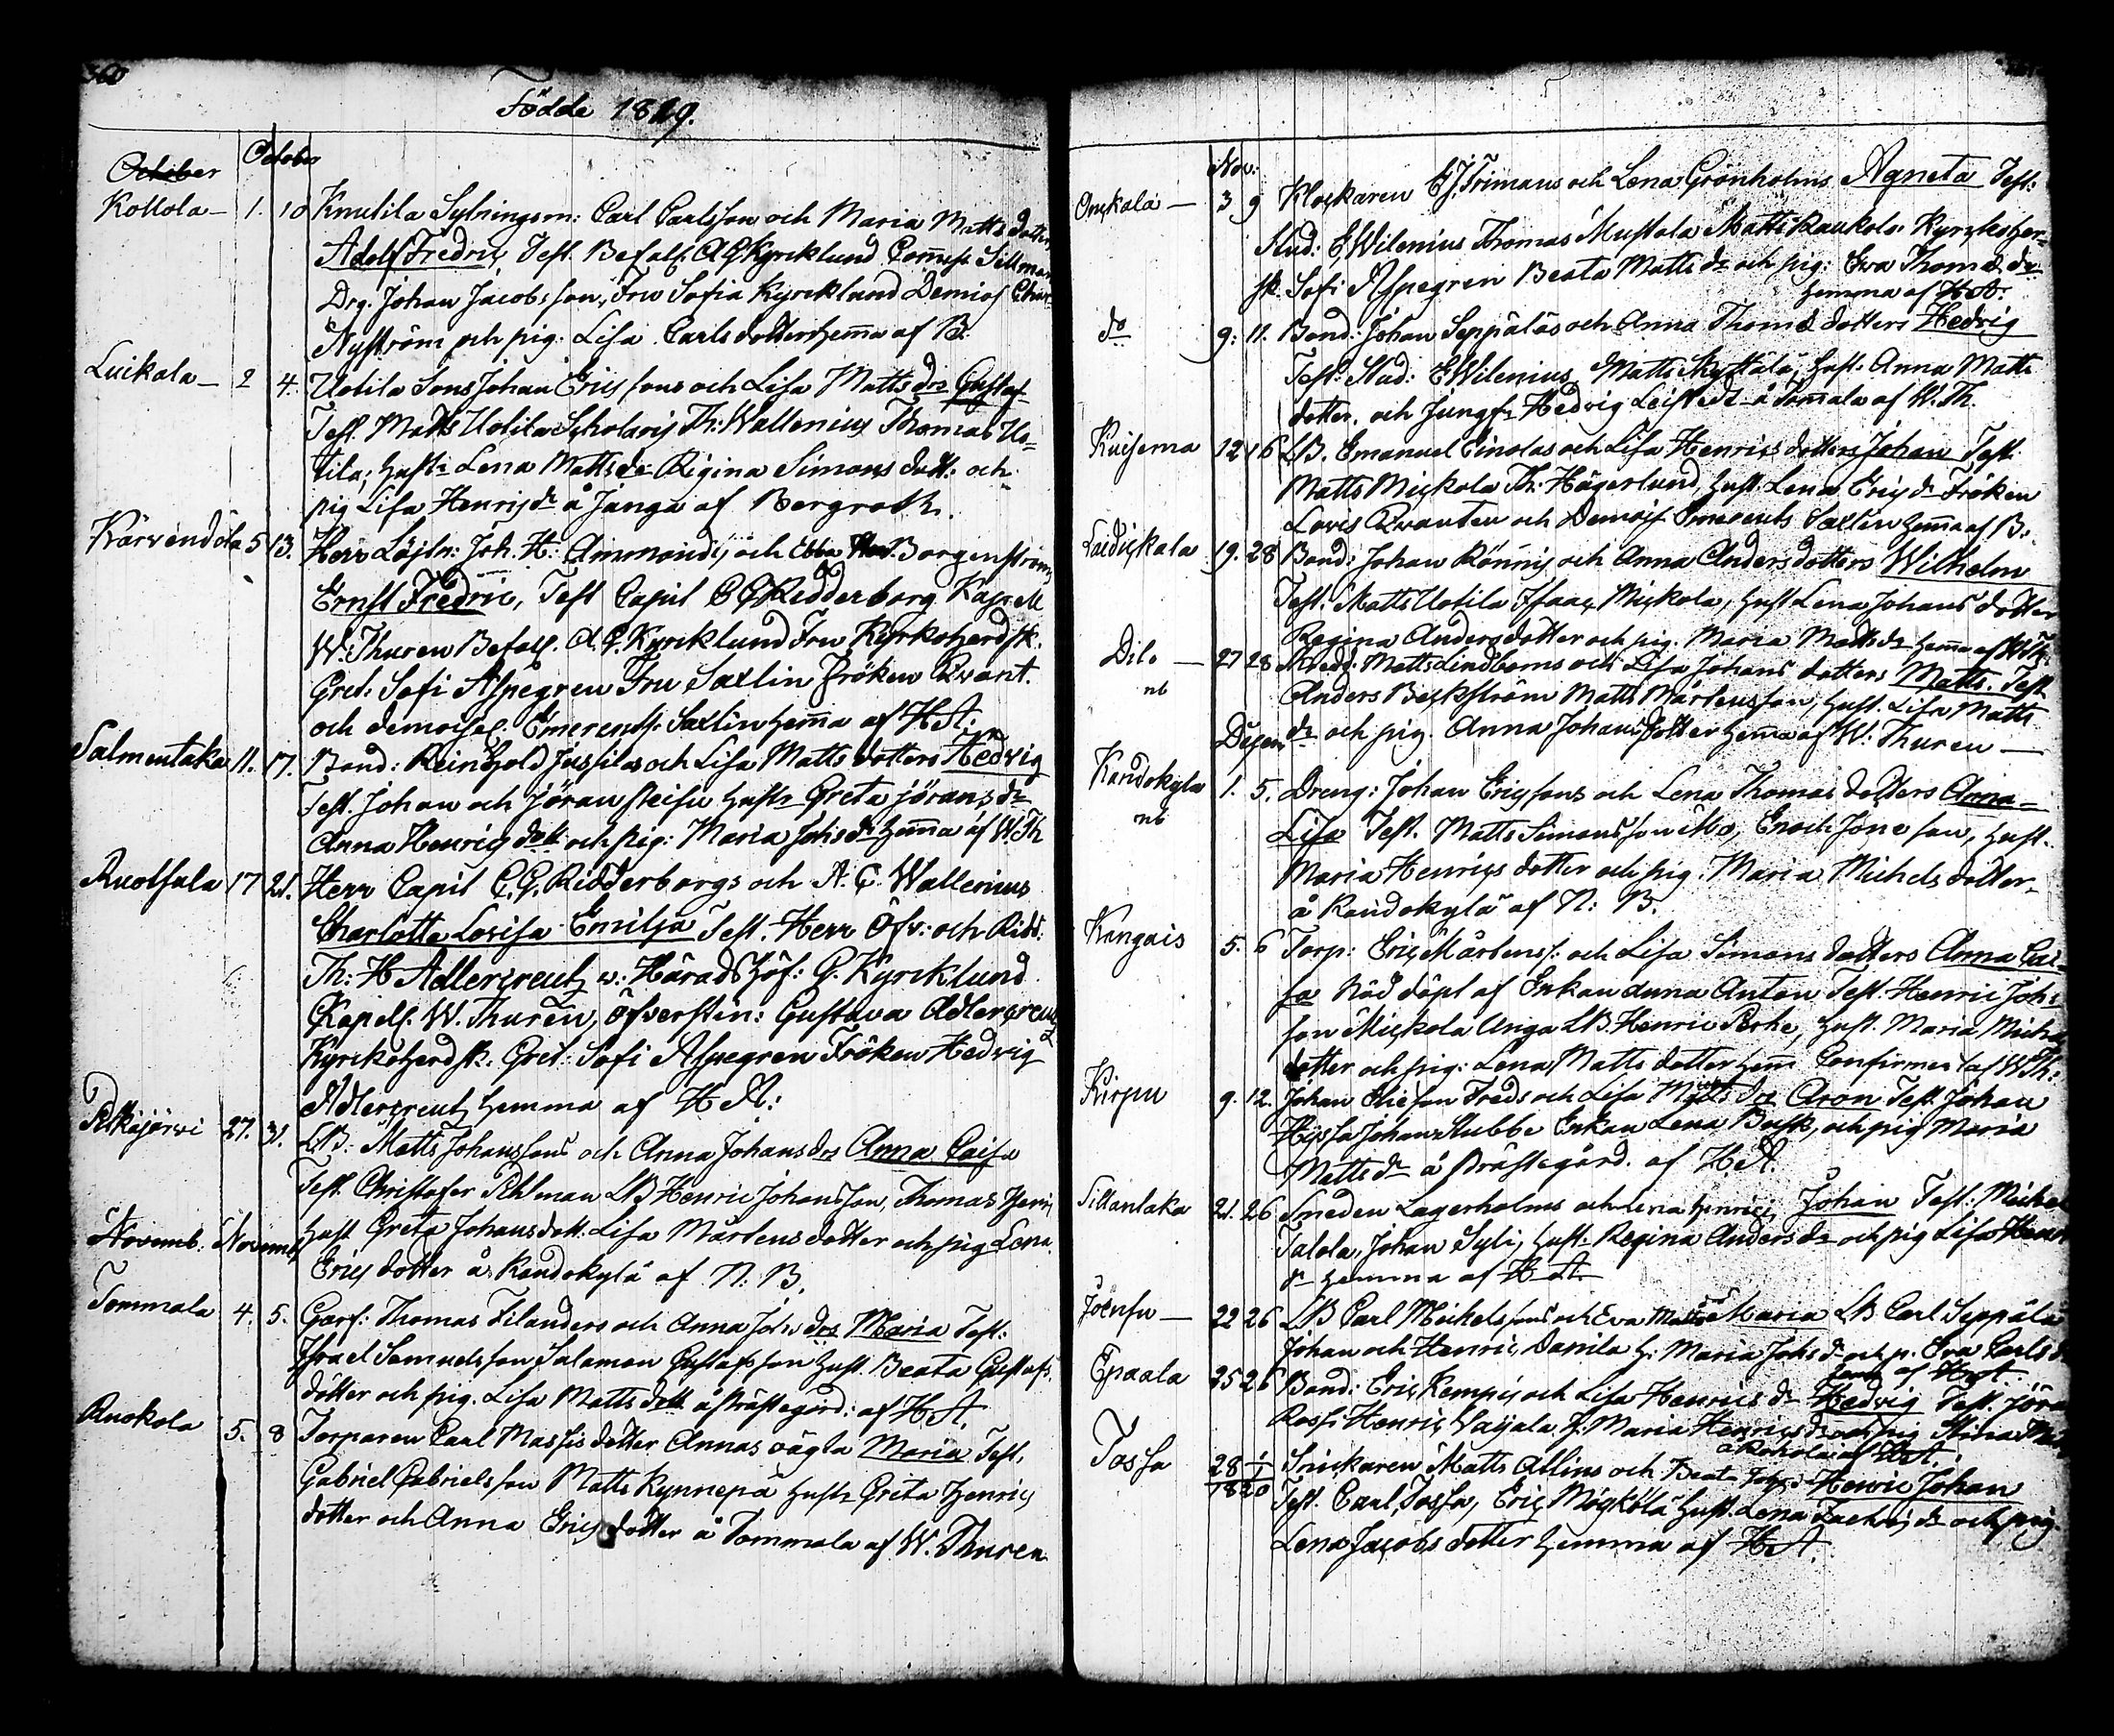 360
Födde 1819.
October October
Kollola — 1. 10 Knutila Sytningsm: Carl Carlsson och Maria Matts dotters
Adolf Fredric, Test. Befalf. A G Kyrcklund Sillman
Drg. Johan Jacobsson, Fru Sofia Kyrcklund Demois
Nyström och pig: Lisa Carls dotter hem̄a af B.
Luikala — 2 4. Uotila Sons Johan Ericssons och Lisa Matts drs Gustaf
Test. Matts Uotila Th: Wallenius Thomas Uo-
tila, hustr Lena Matts dr Rigina Simons dott: och
pig Lisa Henrics dr å Janga af Bergroth.
5 13. Herr Löjtn: Joh. H: Ammondts och Ebba Borgenströms
Ernst Fredric, Test Capit C G Ridderborg Kapell
W: Thuren Befalf. A. G. Kyrcklund Fru Kyrkoherdsk.
Gret: Sofi Aspegren Fru Saxlin Fröken Qvant.
och demoisel. Emerents: Saxlin hem̄a af H A:
Salmentaka 11. 17. Bond: Reinhold Jussilas och Lisa Matts dotters Hedvig
Test. Johan och Jöran hustr Greta Jörans dr
Anna Henrics dott och pig: Maria Johs dr hem̄a af W. Th
Ruotsula 17 21. Herr Capit C. G. Ridderborgs och A. C. Wallenius
Charlotta Lovisa Emilja Test. Herr Öfv: och Ridd:
Th: H Adlercreutz v: Häradshöf: G. Kyrcklund
Kapell. W. Thurén, Öfverstin: Gustava Adlercreutz
Kyrkoherdsk. Gret: Sofi Aspegren Fröken Hedvig
Adlercreutz hemma af H A:
Pitkäjärvi 27. 31. LB: Matts Johanssons och Anna Johans drs Anna Caisa
Test. Christofer Pihlman LB Henric Johansson, Thomas Henric
Novemb. Novemb hust Greta Johans dott. Lisa Mårtens dotter och pig Lena
Erics dotter å Kandokylä af N: B.
Tommala 4. 5. Garf: Thomas Filanders och Anna Joh drs Maria Test:
Israel Samuelsson Salamon Gustafsson hust. Beata Gustafs
dotter och pig. Lisa Matts dott å Prästegård: af H A.
Ruokola 5. 8 Torparen Carl Massis dotter Annas oägta Maria Test.
Gabriel Gabrielsson Matts Kynnepä hustr Greta Henrics
dotter och Anna Erics dotter å Tommala af W. Thuren
Nov:
Onkala — 3 9 Klockaren E J. Frimans och Lena Grönholms Agneta Test:
Stud: E Wilenius Thomas Mustala Matts Raukola Kyrckoher-
sk. Sofi Aspegren Beata Matts dr och pig: Eva Thomæ dr
hemma af H A.
do 9: 11. Bond: Johan Seppäläs och Anna Thomæ dotters Hedvig
Test: Stud: E Wilenius, Matts Skyttälä, hust. Anna Matts
dotter. och Jungfr Hedvig Leistedt å Tom̄ala af W. Th.
Kuisema 12 16 LB. Emanuel Einolas och Lisa Henrics dotters Johan Test.
Matts Mickola Th: Hägerlund, hust: Lena Erics dr Fröken
Lovis Qvanten och Demois Emerents Saxlin hem̄a af B:
19. 28 Bond: Johan Rönnis och Anna Anders dotters Wilhelm
Test: Matts Uotila Isaac Mickola, hust Lena Johans dotter
Regina Anders dotter och pig. Maria Matts dr hem̄a af W Th:
Dito — 27 28 Matts Lindboms och Lisa Johans dotters Matts. Test
nb Anders Beckström Matts Mårtensson, hust. Lisa Matts
Decem dr och pig. Anna Johans dotter hem̄a af W: Thuren —
Kandokylä 1. 5. Dreng: Johan Ericssons och Lena Thomas dotters Anna-
nb Lisa Test. Matts Simonsson Enoch Jöransson, hust.
Maria Henrics dotter och pig. Maria Michels dotter
å Kandokylä af N: B.
Kangais 5. 6 Torp: Eric Mårtens: och Lisa Simons dotters Anna Cai-
sa Nöd döpt af Enkan Anna Anton Test. Henric Joh:
son Mickola Unga LB. Henric Perhe, hust. Maria Michs
dotter och pig: Lena Matts dotter hem̄ Confirmerat af W Th:
Kirpu 9. 12. Johan Eliesson Freds och Lisa Matts drs Aron Test. Johan
Hyssa Johan Stubbe Enkan Lena Busk, och pig Maria
Matts dr å Prästegård. af H A.
Sittantaka 21. 26 Smeden Lagerholms och Lena Henrics Johan Test: Michel
Talola, Johan Syli, hust. Regina Anders dr och pig Lisa Henr
dr hemma af H A
Joensu — 22 26 LB Carl Meikelssons och Eva Matts Maria LB Carl Seppälä
Johan och Henric Danila h: Maria Johs dr och p. Eva Carls dr
af H A
Epaala 25 26 Bond: Eric Kempis och Lisa Henrics dr Hedvig Test. Jöran
Rossi Henric Vaijala h. Maria Henrics dr och pig Stina
å Rokola af H A.
Tossa 28 1/1 1820 Snickaren Matts Allins och Beata Henric Johan
Test. Carl Tossa, Eric Möykkölä hust. Lena dr och pig.
Lena Jacobs dotter hemma af H A.